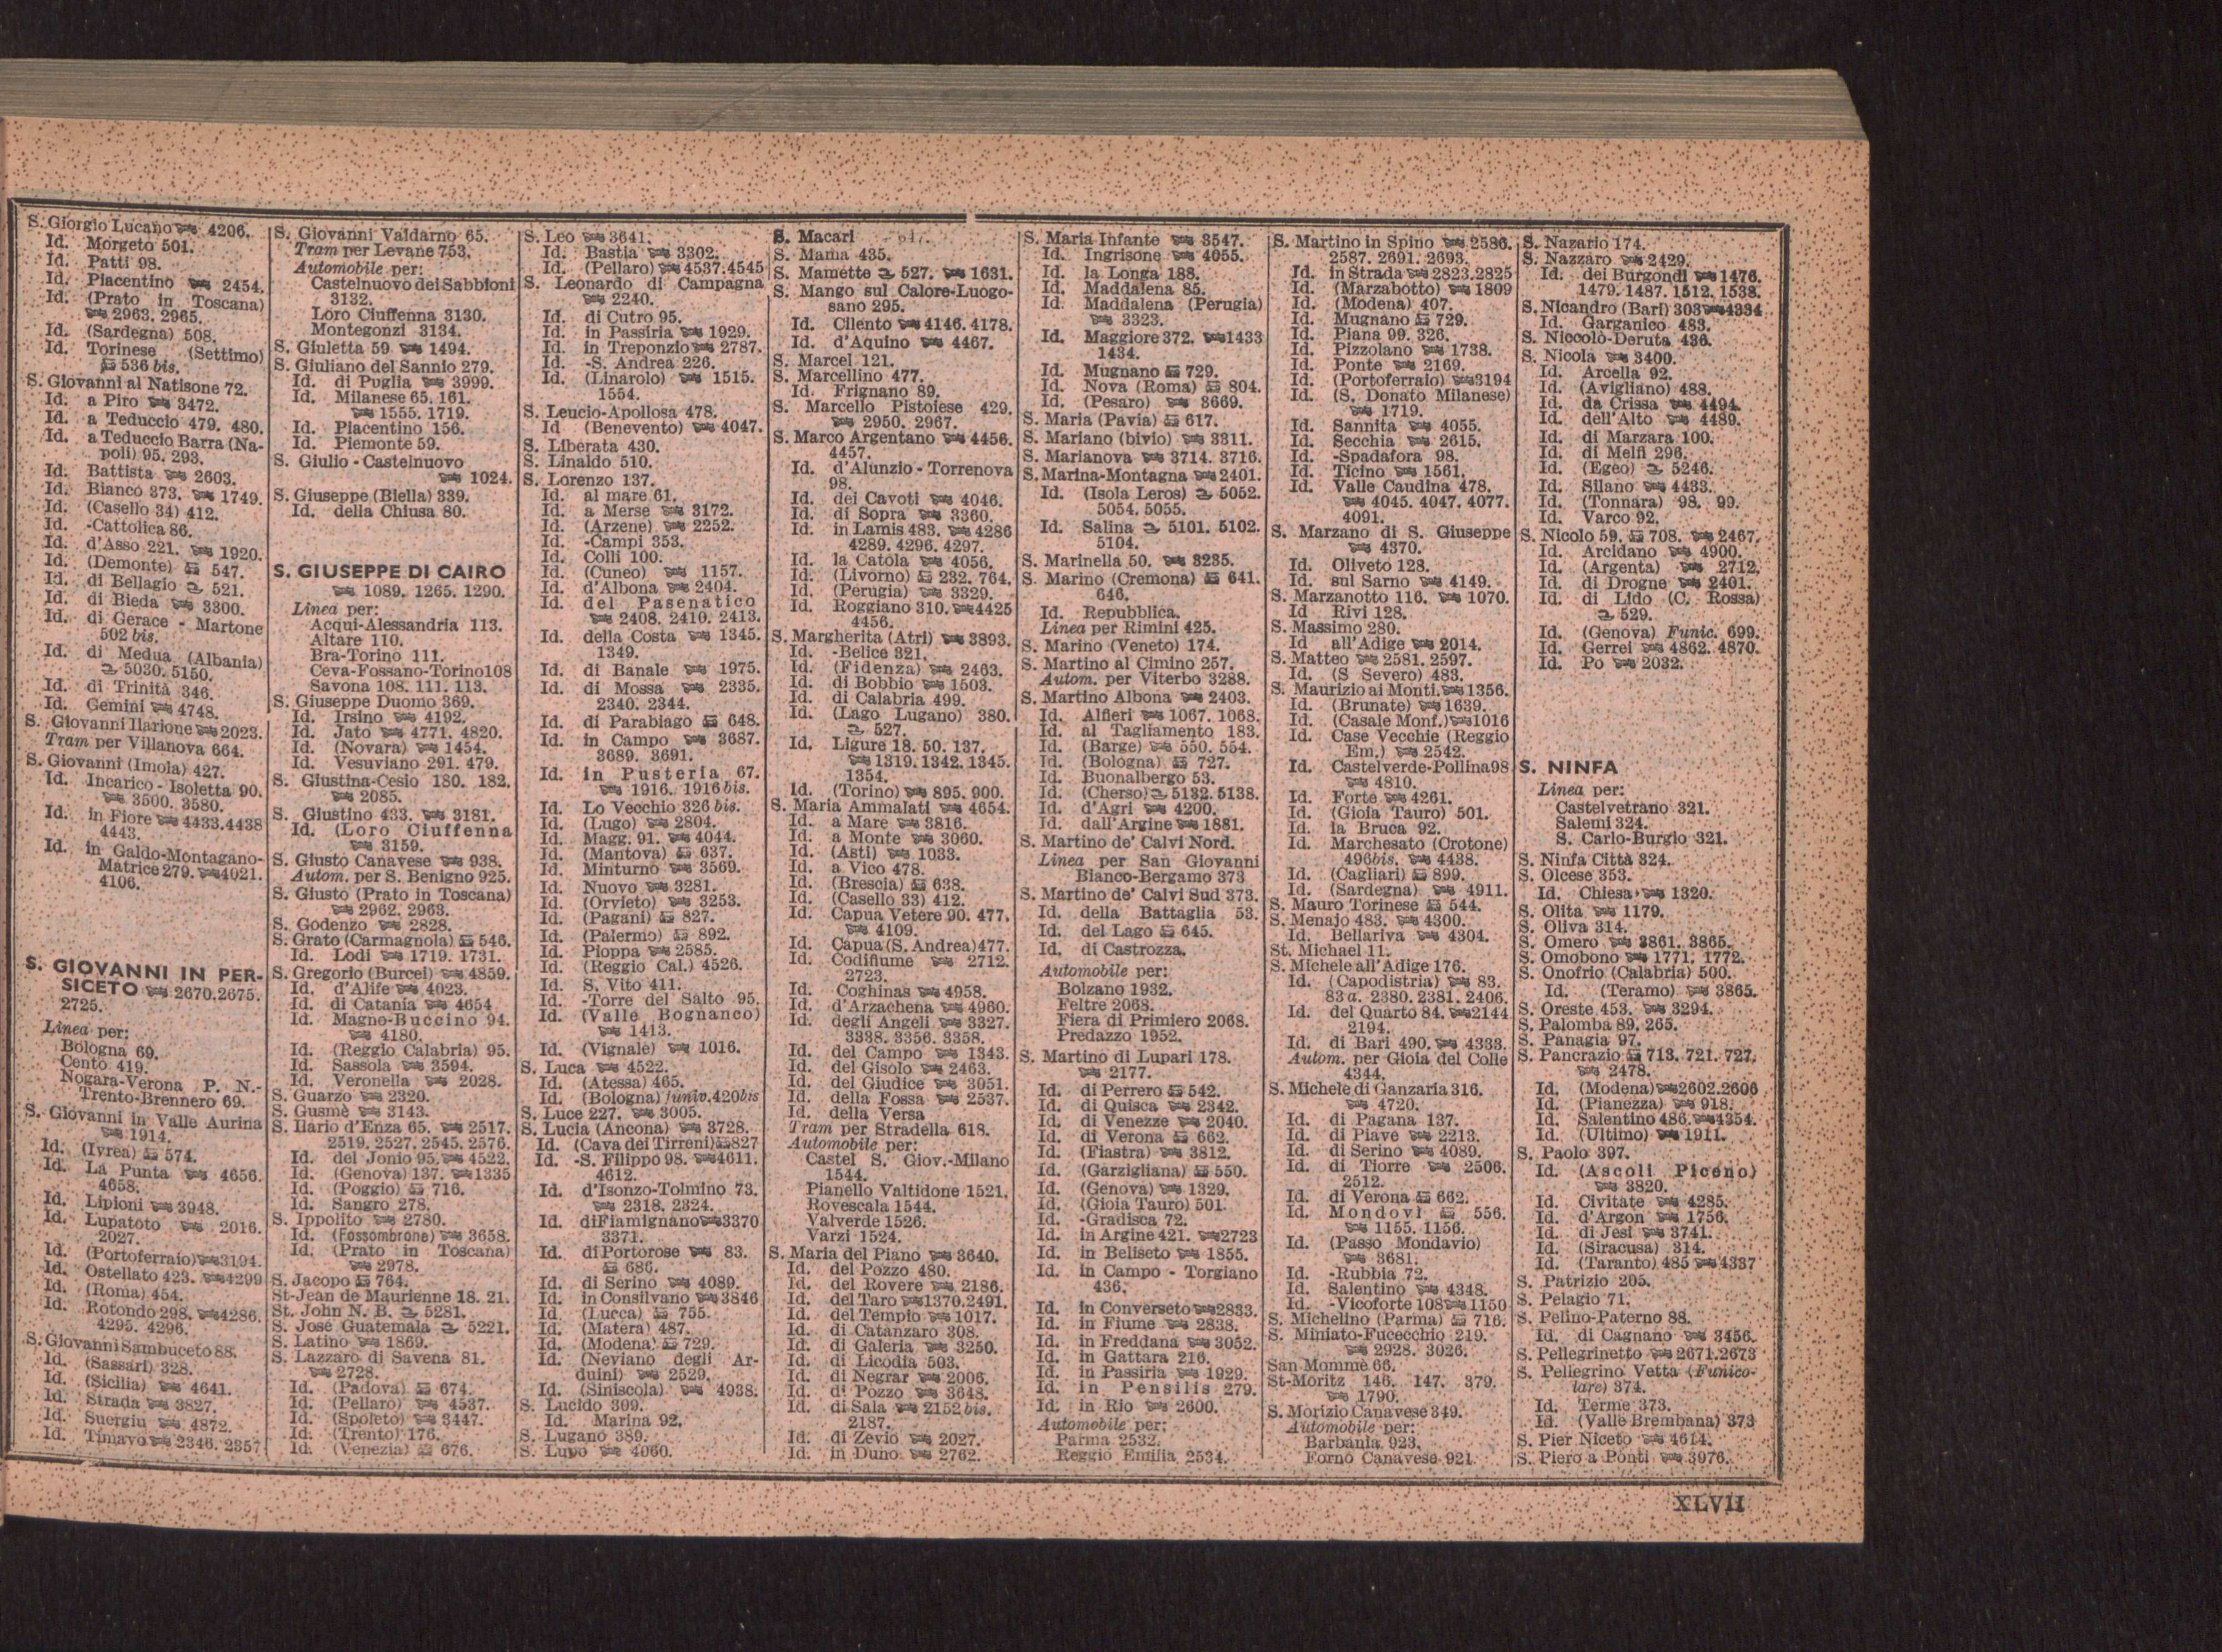 S. Giorgio Lucano 4206.
Id. Morgeto 501.
Id. Patti 98.
Id. Piacentino 2454.
Id. (Prato in Toscana)
2963. 2965.
Id. (Sardegna) 508.
Id. Torinese (Settimo)
536 bis.
S. Giovanni al Natisone 72.
Id. a Piro 3472.
Id. a Teduccio 479. 480.
Id. a Teduccio Barra (Na-
poli) 95. 293.
Id. Battista 2603.
Id. Bianco 373. 1749.
Id. (Casello 34) 412.
Id. -Cattolica 86.
Id. d'Asso 221. 1920.
Id. (Demonte) 547.
Id. di Bellagio 521.
Id. di Bieda 3300.
Id. di Gerace - Martone
502 bis.
Id. di Medua (Albania)
5030. 5150.
Id. di Trinità 346.
Id. Gemini 4748.
S. Giovanni Ilarione 2023.
Tram per Villanova 664.
S. Giovanni (Imola) 427.
Id. Incarico - Isoletta 90.
3500. 3580.
Id. in Fiore 4433.4438
4443.
Id. in Galdo-Montagano-
Matrice 279. 4021.
4106.
S. GIOVANNI IN PER-
SICETO 2670.2675.
2725.
Linea per:
Bologna 69.
Cento 419.
Nogara-Verona P. N.-
Trento-Brennero 69.
S. Giovanni in Valle Aurina
1914.
Id. (Ivrea) 574.
Id. La Punta 4656.
4658.
Id. Lipioni 3948.
Id. Lupatoto 2016.
2027.
Id. (Portoferraio) 3194.
Id. Ostellato 423. 4299
Id. (Roma) 454.
Id. Rotondo 298. 4286.
4295. 4296.
S. Giovanni Sambuceto 88.
Id. (Sassari) 328.
Id. (Sicilia) 4641.
Id. Strada 3827.
Id. Suergiu 4872.
Id. Timavo 2346. 2357
S. Giovanni Valdarno 65.
Tram per Levane 753.
Automobile per:
Castelnuovo dei Sabbioni
3132.
Loro Ciuffenna 3130.
Montegonzi 3134.
S. Giuletta 59 1494.
S. Giuliano del Sannio 279.
Id. di Puglia 3999.
Id. Milanese 65. 161.
1555. 1719.
Id. Piacentino 156.
Id. Piemonte 59.
S. Giulio - Castelnuovo
1024.
S. Giuseppe (Biella) 339.
Id. della Chiusa 80.
S. GIUSEPPE DI CAIRO
1089. 1265. 1290.
Linea per:
Acqui-Alessandria 113.
Altare 110.
Bra-Torino 111.
Ceva-Fossano-Torino 108
Savona 108. 111. 113.
S. Giuseppe Duomo 369.
Id. Irsino 4192.
Id. Jato 4771. 4820.
Id. (Novara) 1454.
Id. Vesuviano 291. 479.
S. Giustina-Cesio 180. 182.
2085.
S. Giustino 433. 3181.
Id. (Loro Ciuffenna
3159.
S. Giusto Canavese 938.
Autom. per S. Benigno 925.
S. Giusto (Prato in Toscana)
2962. 2963.
S. Godenzo 2828.
S. Grato (Carmagnola) 546.
Id. Lodi 1719. 1731.
S. Gregorio (Burcei) 4859.
Id. d'Alife 4023.
Id. di Catania 4654
Id. Magno-Buccino 94.
4180.
Id. (Reggio Calabria) 95.
Id. Sassola 3594.
Id. Veronella 2028.
S. Guarzo 2320.
S. Gusmè 3143.
S. Ilario d'Enza 65. 2517.
2519. 2527. 2545. 2576.
Id. del Jonio 95. 4522.
Id. (Genova) 137. 1335
Id. (Poggio) 716.
Id. Sangro 278.
S. Ippolito 2780.
Id. (Fossombrone) 3658.
Id. (Prato in Toscana)
2978.
S. Jacopo 764.
St-Jean de Maurienne 18. 21.
St. John N. B. 5281.
S. Josè Guatemala 5221.
S. Latino 1869.
S. Lazzaro di Savena 81.
2728.
Id. (Padova) 674.
Id. (Pellaro) 4537.
Id. (Spoleto) 3447.
Id. (Trento) 176.
Id. (Venezia) 676.
S. Leo 3641.
Id. Bastia 3302.
Id. (Pellaro) 4537.4545
S. Leonardo di Campagna
2240.
Id. di Cutro 95.
Id. in Passiria 1929.
Id. in Treponzio 2787.
Id. -S. Andrea 226.
Id. (Linarolo) 1515.
1554.
S. Leucio-Apollosa 478.
Id (Benevento) 4047.
S. Liberata 430.
S. Linaldo 510.
S. Lorenzo 137.
Id. al mare 61.
Id. a Merse 3172.
Id. (Arzene) 2252.
Id. -Campi 353.
Id. Colli 100.
Id. (Cuneo) 1157.
Id. d'Albona 2404.
Id. del Pasenatico
2408. 2410. 2413.
Id. della Costa 1345.
1349.
Id. di Banale 1975.
Id. di Mossa 2335.
2340. 2344.
Id. di Parabiago 648.
Id. in Campo 3687.
3689. 3691.
Id. in Pusteria 67.
1916. 1916 bis.
Id. Lo Vecchio 326 bis.
Id. (Lugo) 2804.
Id. Magg. 91. 4044.
Id. (Mantova) 637.
Id. Minturno 3569.
Id. Nuovo 3281.
Id. (Orvieto) 3253.
Id. (Pagani) 827.
Id. (Palermo) 892.
Id. Pioppa 2585.
Id. (Reggio Cal.) 4526.
Id. S. Vito 411.
Id. -Torre del Salto 95.
Id. (Valle Bognanco)
1413.
Id. (Vignale) 1016.
S. Luca 4522.
Id. (Atessa) 465.
Id. (Bologna) funiv. 420 bis
S. Luce 227. 3005.
S. Lucia (Ancona) 3728.
Id. (Cava dei Tirreni) 827
Id. -S. Filippo 98. 4611.
4612.
Id. d'Isonzo-Tolmino 73.
2318. 2324.
Id. di Fiamignano 3370
3371.
Id. di Portorose 83.
686.
Id. di Serino 4089.
Id. in Consilvano 3846
Id. (Lucca) 755.
Id. (Matera) 487.
Id. (Modena) 729.
Id. (Neviano degli Ar-
duini) 2529.
Id. (Siniscola) 4938.
S. Lucido 309.
Id. Marina 92.
S. Lugano 389.
S. Lupo 4060.
S. Macari
S. Mama 435.
S. Mamette 527. 1631.
S. Mango sul Calore-Luogo-
sano 295.
Id. Cilento 4146. 4178.
Id. d'Aquino 4467.
S. Marcel 121.
S. Marcellino 477.
Id. Frignano 89.
S. Marcello Pistoiese 429.
2950. 2967.
S. Marco Argentano 4456.
4457.
Id. d'Alunzio - Torrenova
98.
Id. dei Cavoti 4046.
Id. di Sopra 3360.
Id. in Lamis 483. 4286
4289. 4296. 4297.
Id. la Catola 4056.
Id. (Livorno) 232. 764.
Id. (Perugia) 3329.
Id. Roggiano 310. 4425
4456.
S. Margherita (Atri) 3893.
Id. -Belice 321.
Id. (Fidenza) 2463.
Id. di Bobbio 1503.
Id. di Calabria 499.
Id. (Lago Lugano) 380.
527.
Id. Ligure 18. 50. 137.
1319. 1342. 1345.
1354.
Id. (Torino) 895. 900.
S. Maria Ammalati 4654.
Id. a Mare 3816.
Id. a Monte 3060.
Id. (Asti) 1033.
Id. a Vico 478.
Id. (Brescia) 638.
Id. (Casello 33) 412.
Id. Capua Vetere 90. 477.
4109.
Id. Capua (S. Andrea) 477.
Id. Codifiume 2712.
2723.
Id. Coghinas 4958.
Id. d'Arzachena 4960.
Id. degli Angeli 3327.
3338. 3356. 3358.
Id. del Campo 1343.
Id. del Gisolo 2463.
Id. del Giudice 3051.
Id. della Fossa 2537.
Id. della Versa
Tram per Stradella 618.
Automobile per:
Castel S. Giov.-Milano
1544.
Pianello Valtidone 1521.
Rovescala 1544.
Valverde 1526.
Varzi 1524.
S. Maria del Piano 3640.
Id. del Pozzo 480.
Id. del Rovere 2186.
Id. del Taro 1370.2491.
Id. del Tempio 1017.
Id. di Catanzaro 308.
Id. di Galeria 3250.
Id. di Licodia 503.
Id. di Negrar 2006.
Id. di Pozzo 3648.
Id. di Sala 2152 bis.
2187.
Id. di Zevio 2027.
Id. in Duno 2762.
S. Maria Infante 3547.
Id. Ingrisone 4055.
Id. la Longa 188.
Id. Maddalena 85.
Id. Maddalena (Perugia)
3323.
Id. Maggiore 372. 1433
1434.
Id. Mugnano 729.
Id. Nova (Roma) 804.
Id. (Pesaro) 3669.
S. Maria (Pavia) 617.
S. Mariano (bivio) 3311.
S. Marianova 3714. 3716.
S. Marina-Montagna 2401.
Id. (Isola Leros) 5052.
5054. 5055.
Id. Salina 5101. 5102.
5104.
S. Marinella 50. 3235.
S. Marino (Cremona) 641.
646.
Id. Repubblica.
Linea per Rimini 425.
S. Marino (Veneto) 174.
S. Martino al Cimino 257.
Autom. per Viterbo 3288.
S. Martino Albona 2403.
Id. Alfieri 1067. 1068.
Id. al Tagliamento 183.
Id. (Barge) 550. 554.
Id. (Bologna) 727.
Id. Buonalbergo 53.
Id. (Cherso) 5132. 5138.
Id. d'Agri 4200.
Id. dall'Argine 1881.
S. Martino de' Calvi Nord.
Linea per San Giovanni
Bianco-Bergamo 373
S. Martino de' Calvi Sud 373.
Id. della Battaglia 53.
Id. del Lago 645.
Id. di Castrozza.
Automobile per:
Bolzano 1932.
Feltre 2068.
Fiera di Primiero 2068.
Predazzo 1952.
S. Martino di Lupari 178.
2177.
Id. di Perrero 542.
Id. di Quisca 2342.
Id. di Venezze 2040.
Id. di Verona 662.
Id. (Fiastra) 3812.
Id. (Garzigliana) 550.
Id. (Genova) 1329.
Id. (Gioia Tauro) 501.
Id. -Gradisca 72.
Id. in Argine 421. 2723
Id. in Beliseto 1855.
Id. in Campo - Torgiano
436.
Id. in Converseto 2833.
Id. in Fiume 2838.
Id. in Freddana 3052.
Id. in Gattara 216.
Id. in Passiria 1929.
Id. in Pensilis 279.
Id. in Rio 2600.
Automobile per:
Parma 2532.
Reggio Emilia 2534.
S. Martino in Spino 2586.
2587. 2691. 2693.
Id. in Strada 2823.2825
Id. (Marzabotto) 1809
Id. (Modena) 407.
Id. Mugnano 729.
Id. Piana 99. 326.
Id. Pizzolano 1738.
Id. Ponte 2169.
Id. (Portoferraio) 3194
Id. (S. Donato Milanese)
1719.
Id. Sannita 4055.
Id. Secchia 2615.
Id. -Spadafora 98.
Id. Ticino 1561.
Id. Valle Caudina 478.
4045. 4047. 4077.
4091.
S. Marzano di S. Giuseppe
4370.
Id. Oliveto 128.
Id. sul Sarno 4149.
S. Marzanotto 116. 1070.
Id Rivi 128.
S. Massimo 280.
Id all'Adige 2014.
S. Matteo 2581. 2597.
Id. (S Severo) 483.
S. Maurizio ai Monti. 1356.
Id. (Brunate) 1639.
Id. (Casale Monf.) 1016
Id. Case Vecchie (Reggio
Em.) 2542.
Id. Castelverde-Pollina 98
4810.
Id. Forte 4261.
Id. (Gioia Tauro) 501.
Id. la Bruca 92.
Id. Marchesato (Crotone)
496bis. 4438.
Id. (Cagliari) 899.
Id. (Sardegna) 4911.
S. Mauro Torinese 544.
S. Menajo 483. 4300.
Id. Bellariva 4304.
St. Michael 11.
S. Michele all'Adige 176.
Id. (Capodistria) 83.
83 a. 2380. 2381. 2406.
Id. del Quarto 84. 2144
2194.
Id. di Bari 490. 4333.
Autom. per Gioia del Colle
4344.
S. Michele di Ganzaria 316.
4720.
Id. di Pagana 137.
Id. di Piave 2213.
Id. di Serino 4089.
Id. di Tiorre 2506.
2512.
Id. di Verona 662.
Id. Mondovì 556.
1155. 1156.
Id. (Passo Mondavio)
3681.
Id. -Rubbia 72.
Id. Salentino 4348.
Id. -Vicoforte 108 1150
S. Michelino (Parma) 716.
S. Miniato-Fucecchio 219.
2928. 3026.
San Mommè 66.
St-Moritz 146. 147. 379.
1790.
S. Morizio Canavese 349.
Automobile per:
Barbania 923.
Forno Canavese 921
S. Nazario 174.
S. Nazzaro 2429.
Id. dei Burgondi 1476.
1479. 1487. 1512. 1538.
S. Nicandro (Bari) 303 4334
Id. Garganico 483.
S. Niccolò-Deruta 436.
S. Nicola 3400.
Id. Arcella 92.
Id. (Avigliano) 488.
Id. da Crissa 4494.
Id. dell'Alto 4489.
Id. di Marzara 100.
Id. di Melfi 296.
Id. (Egeo) 5246.
Id. Silano 4433.
Id. (Tonnara) 98. 99.
Id. Varco 92.
S. Nicolo 59. 708. 2467.
Id. Arcidano 4900.
Id. (Argenta) 2712.
Id. di Drogne 2401.
Id. di Lido (C. Rossa)
529.
Id. (Genova) Funic. 699.
Id. Gerrei 4862. 4870.
Id. Po 2032.
S. NINFA
Linea per:
Castelvetrano 321.
Salemi 324.
S. Carlo-Burgio 321.
S. Ninfa Città 324.
S. Olcese 353.
Id. Chiesa 1320.
S. Olita 1179.
S. Oliva 314.
S. Omero 3861. 3865.
S. Omobono 1771. 1772.
S. Onofrio (Calabria) 500.
Id. (Teramo) 3865.
S. Oreste 453. 3294.
S. Palomba 89. 265.
S. Panagia 97.
S. Pancrazio 713. 721. 727.
2478.
Id. (Modena) 2602.2606
Id. (Pianezza) 918.
Id. Salentino 486. 4354.
Id. (Ultimo) 1911.
S. Paolo 397.
Id. (Ascoli Piceno)
3820.
Id. Civitate 4285.
Id. d'Argon 1756.
Id. di Jesi 3741.
Id. (Siracusa) 314.
Id. (Taranto) 485 4337
S. Patrizio 205.
S. Pelagio 71.
S. Pelino-Paterno 88.
Id. di Cagnano 3456.
S. Pellegrinetto 2671.2673
S. Pellegrino Vetta (Funico-
lare) 374.
Id. Terme 373.
Id. (Valle Brembana) 373
S. Pier Niceto 4614.
S. Piero a Ponti 3976.
XLVII